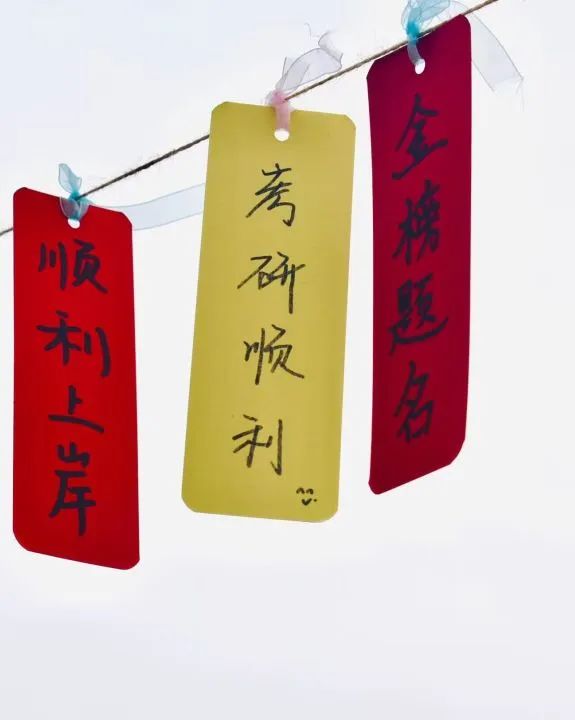 顺利上岸
考研顺利
金榜题名